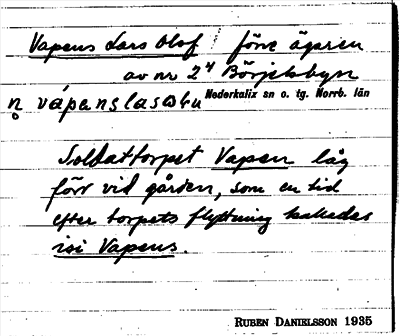 Vapens Lars Olof förre ägaren
av nr 2⁴ Börjelsbyn
Nederkalix sn o. tg. Norrb. län
Soldattorpet Vapen låg
förr vid gården, som en tid
efter torpets flyttning kallades
isi Vapens.
RUBEN DANIELSSON 1935